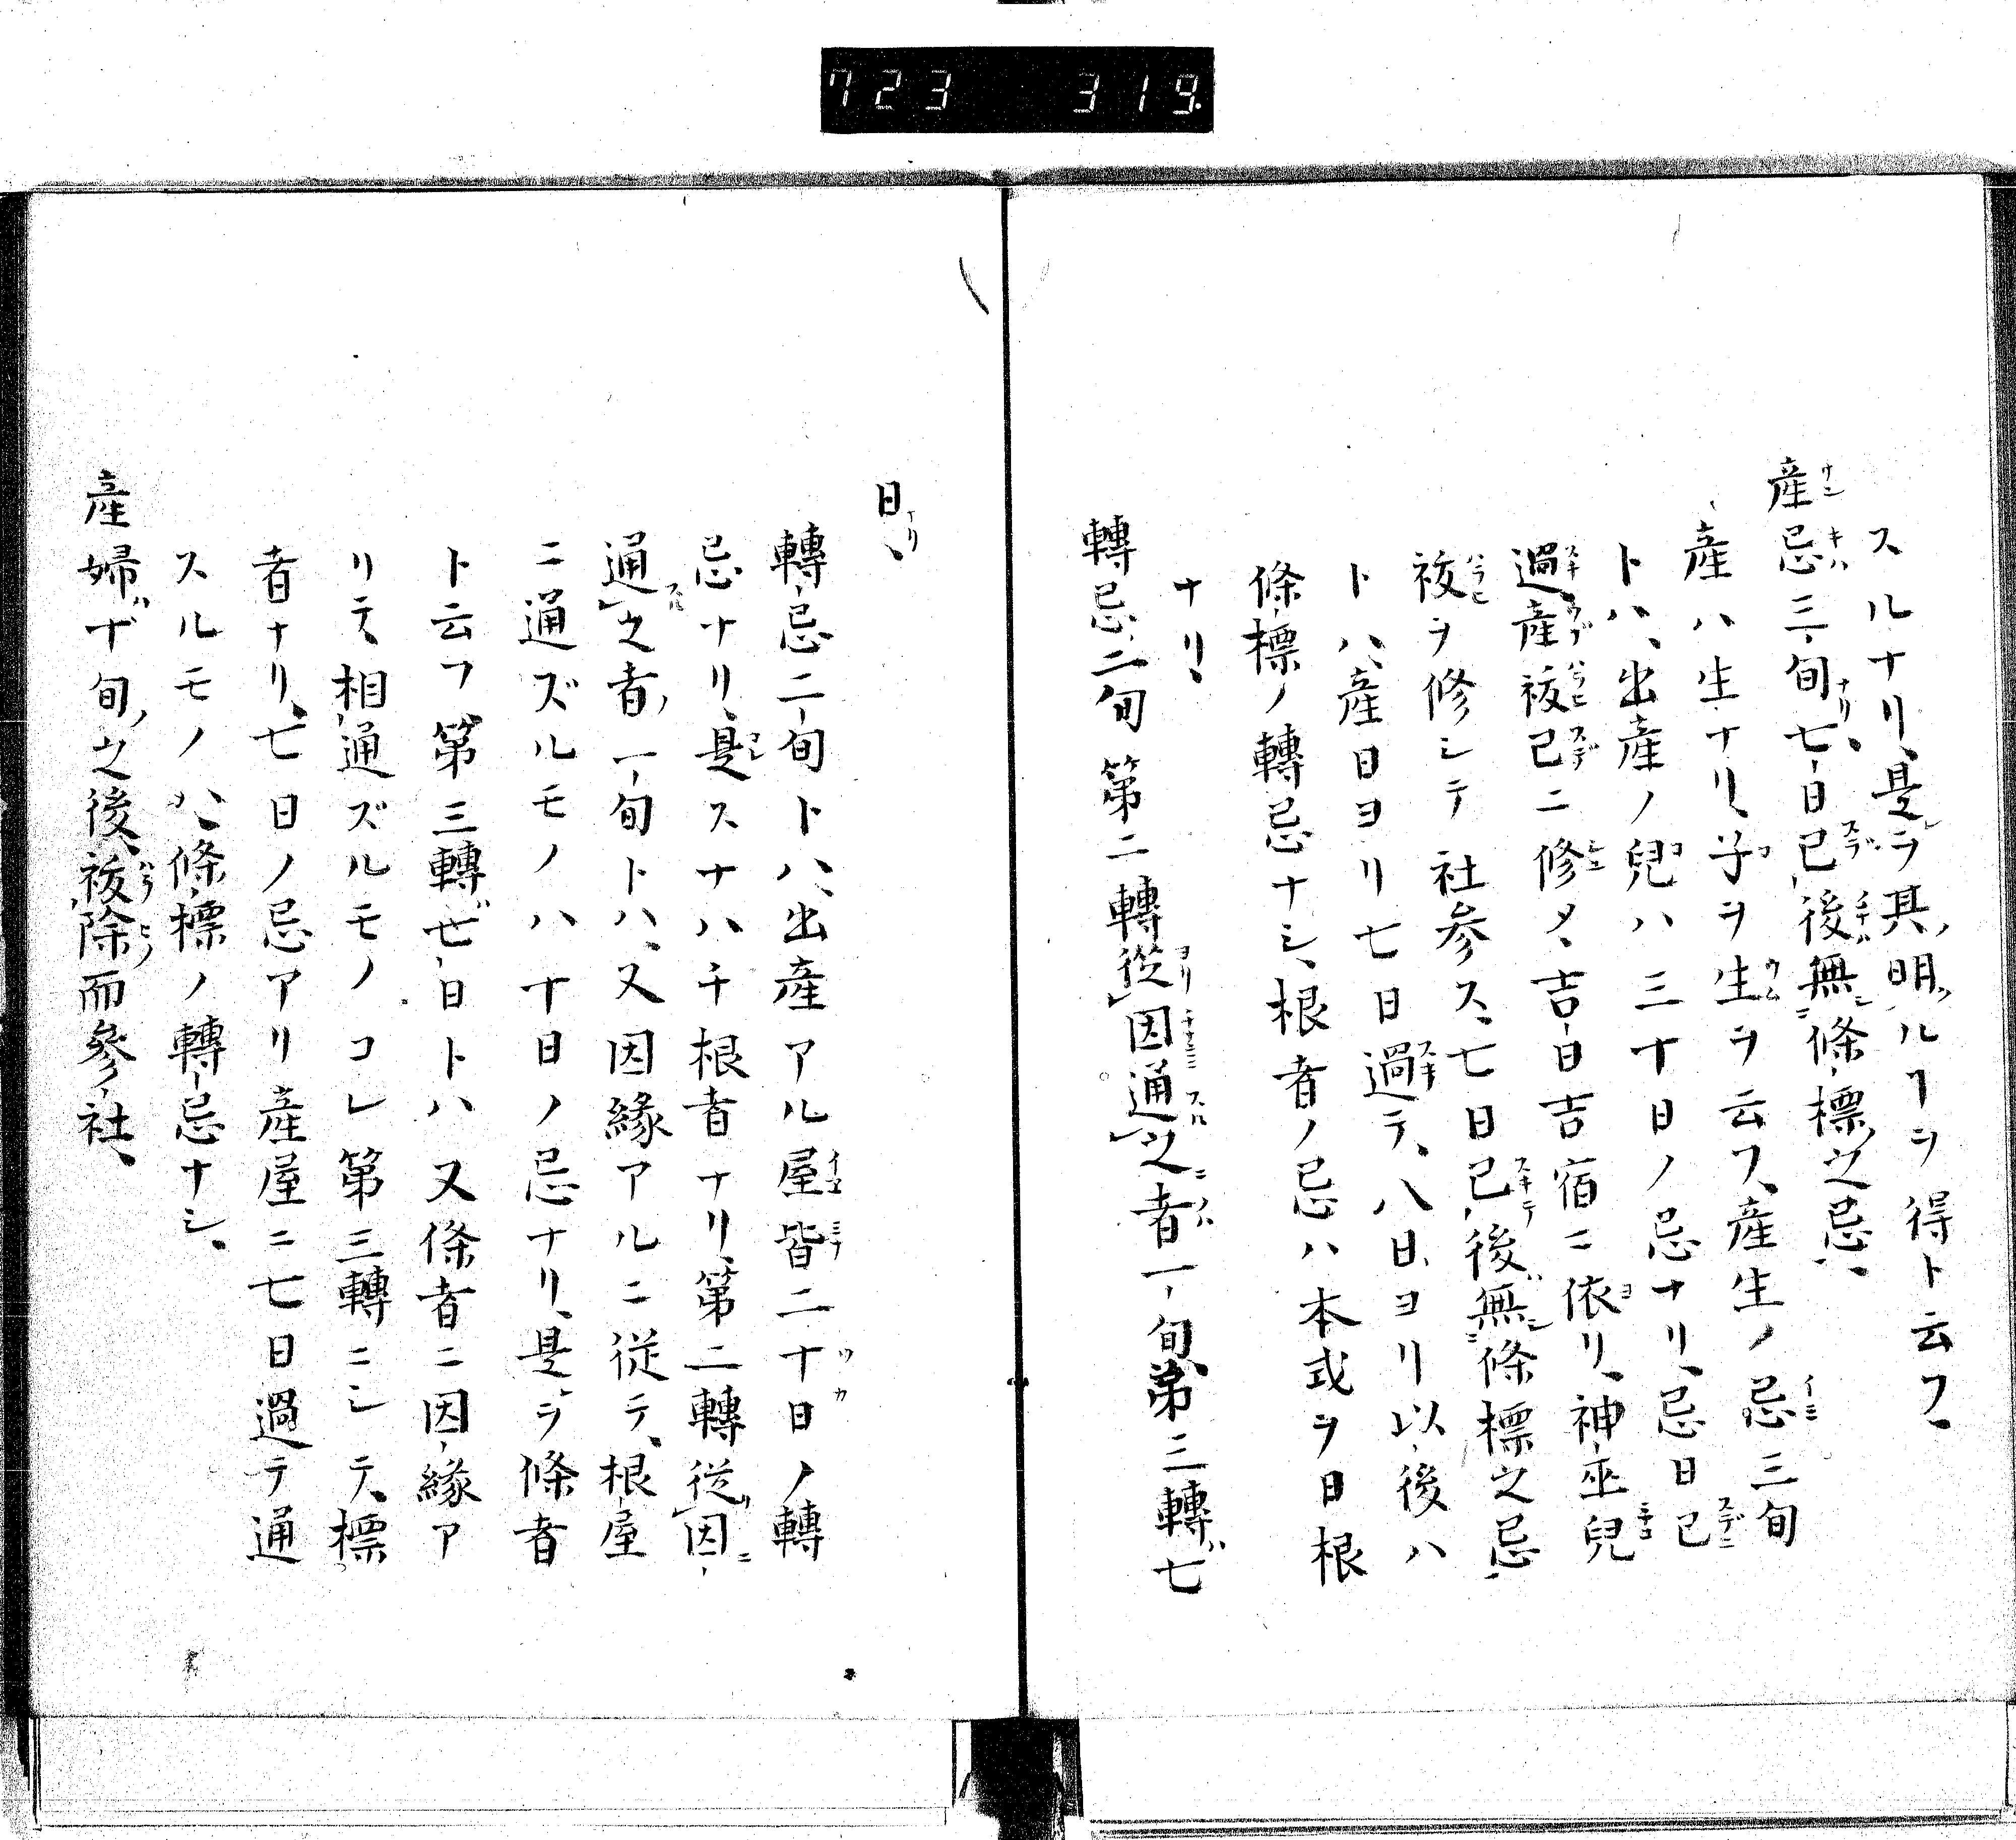 723 319
スルナリ、是ヲ其明ルヿヲ得ト云フ、
産忌三旬七日已後無條標之忌、
産ハ生ナリ、子ヲ生ヲ云フ、産生ノ忌三旬
トハ、出産ノ兒ハ三十日ノ忌ナリ、忌日已
過産祓已ニ修メ、吉日吉宿ニ依リ、神巫兒
祓ヲ修シテ社参ス、七日已後無條標之忌
トハ、産日ヨリ七日過テ、八日ヨリ以後ハ
條標ノ轉忌ナシ、根者ノ忌ハ本式ヲ日根
ナリ、
轉忌二旬第二轉從因通之者一旬、第三轉七
日、
轉忌二旬トハ、出産アル屋皆二十日ノ轉
忌ナリ、是スナハチ根者ナリ、第二轉從因
通之者一旬トハ、又因緣アルニ従テ、根屋
ニ通ズルモノハ十日ノ忌ナリ、是ヲ條者
ト云フ、第三轉七日トハ又條者ニ因緣ア
リテ、相通ズルモノコレ第三轉ニシテ、標
者ナリ、七日ノ忌アリ産屋ニ七日過テ通
スルモノハ、條標ノ轉忌ナシ、
産婦十旬之後、祓除而參社、